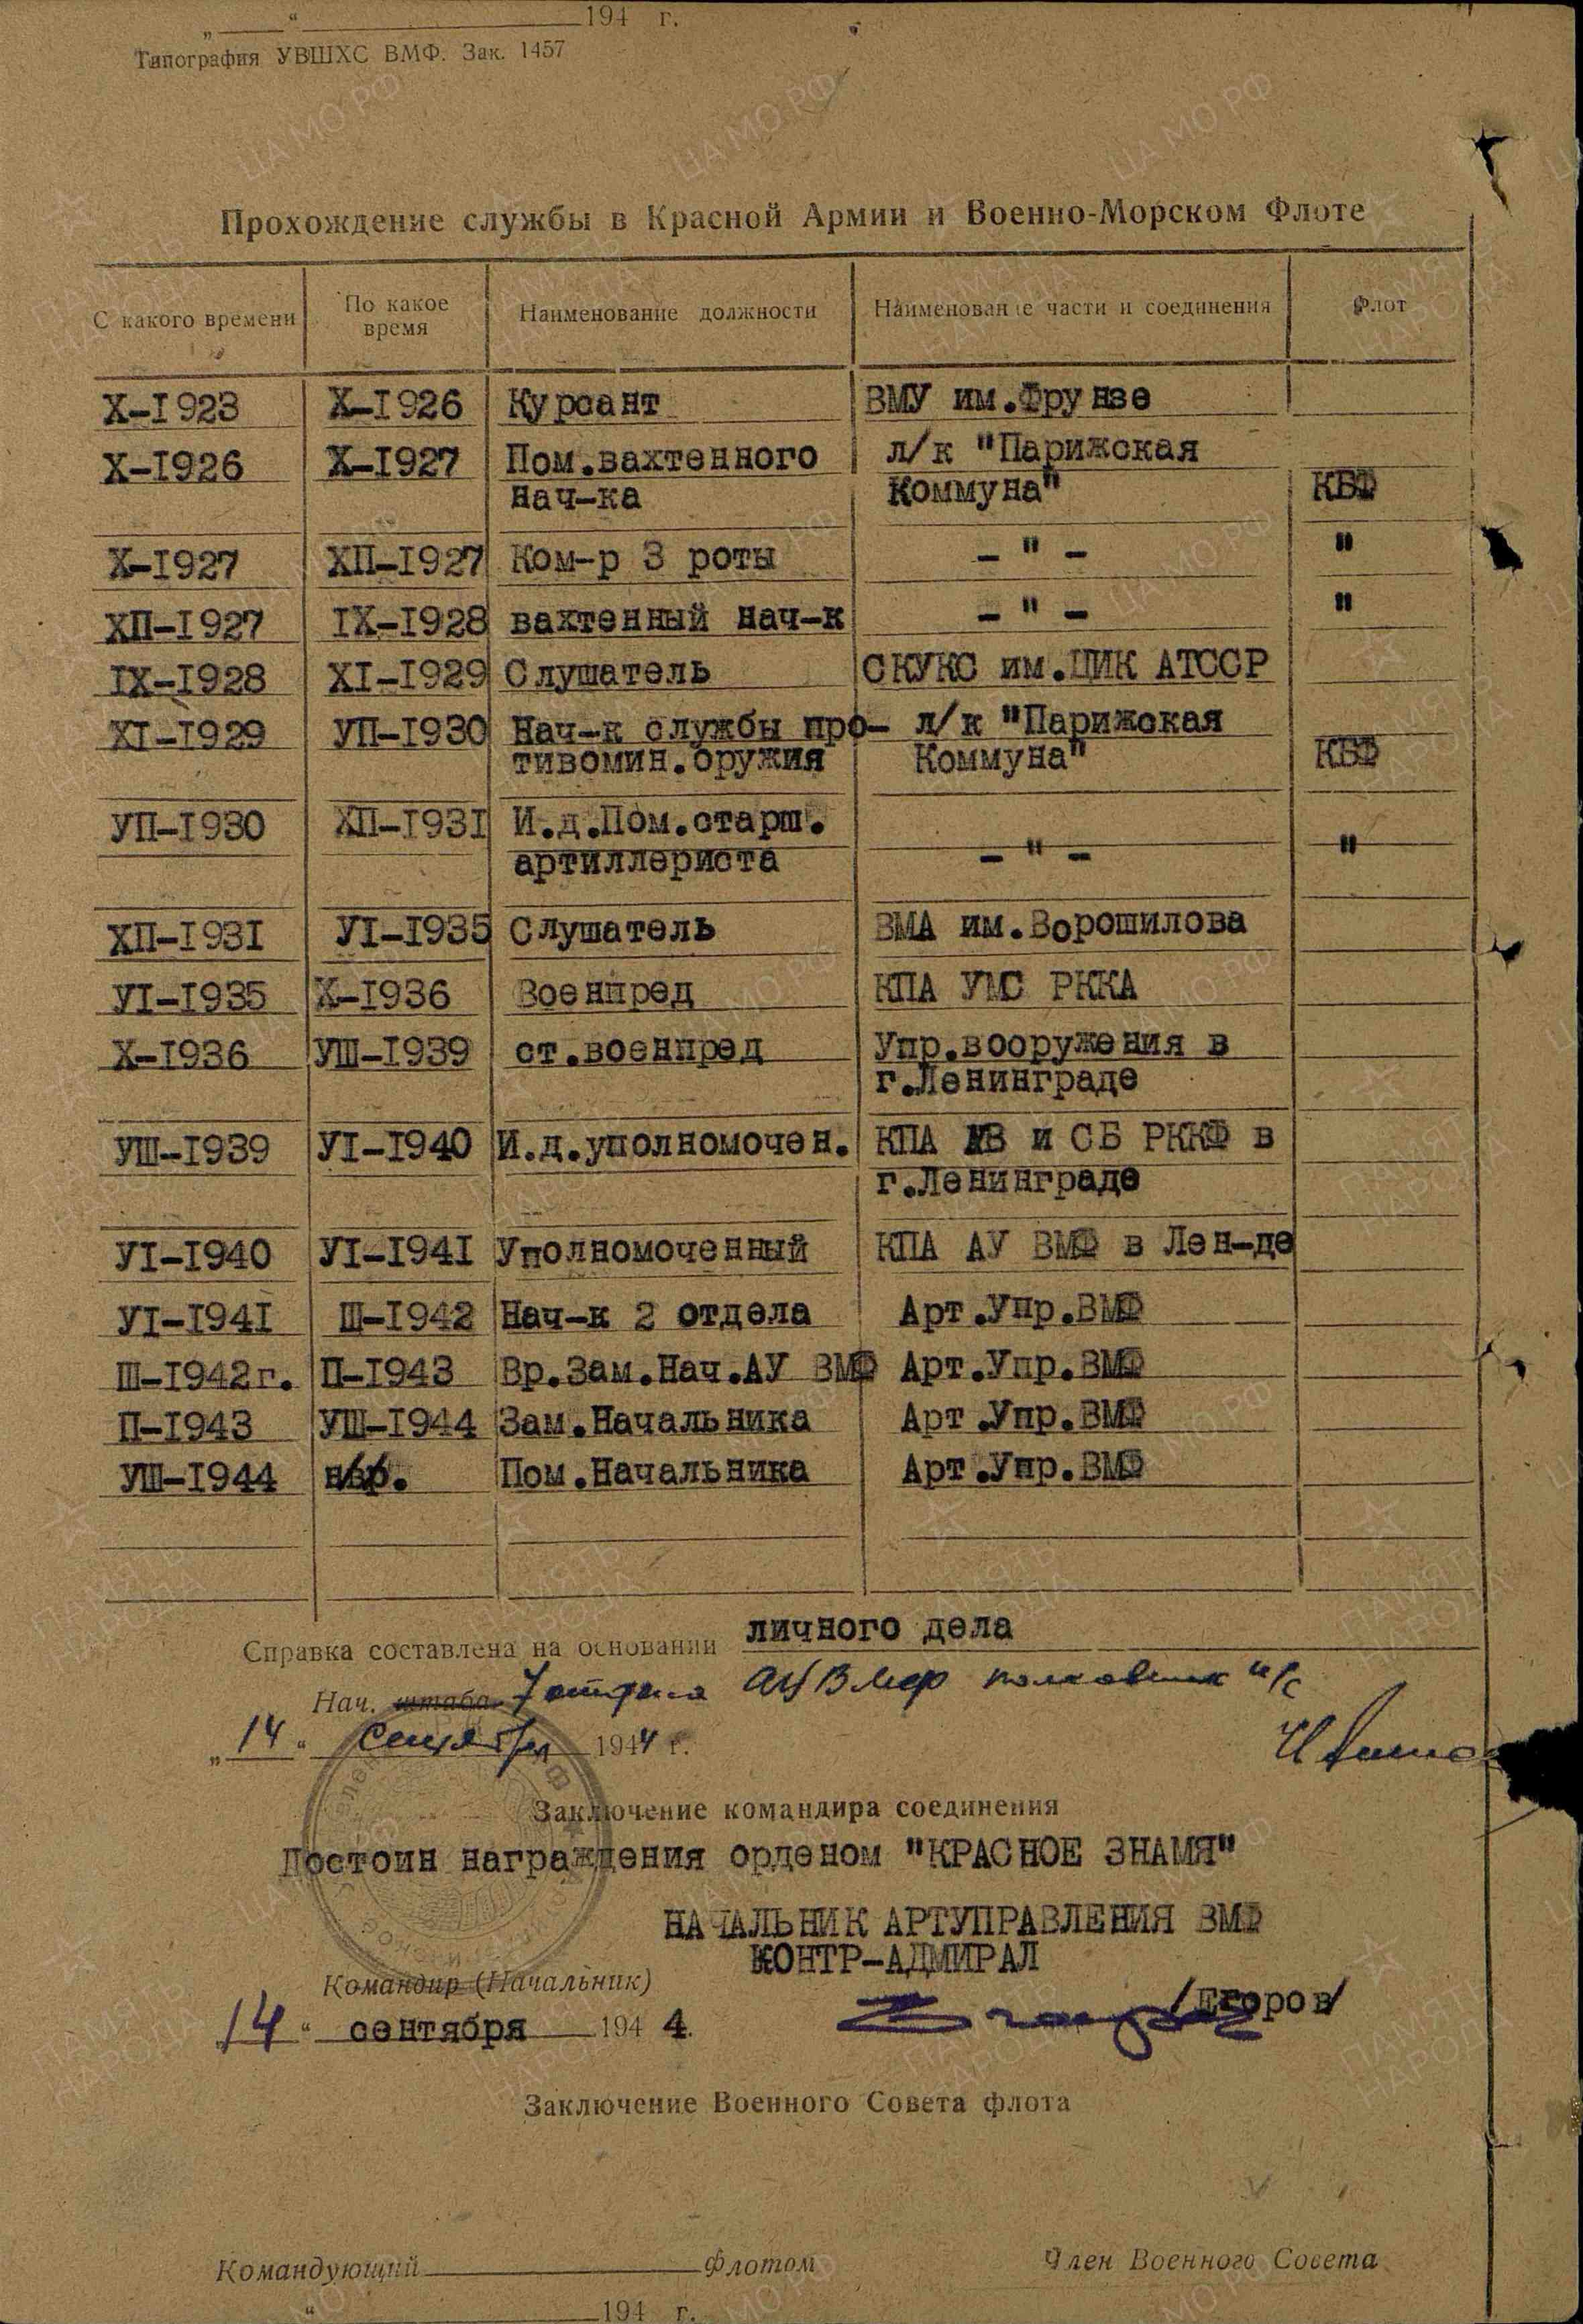 „ “ 194 г.
Типография УВШХС ВМФ. Зак. 1457
Прохождение службы в Красной Армии и Военно-Морском Флоте
С какого времени По какое время Наименование должности Наименование части и соединения Флот
X-I923 X-I926 Курсант ВМУ им.Фрунзе
X-I926 X-I927 Пом.вахтенного л/к "Парижская
нач-ка Коммуна" КБФ
X-I927 ХП-I927 Ком-р 3 роты - " - "
ХП-I927 IX-I928 вахтенный нач-к - " - "
IX-I928 XI-I929 Слушатель СКУКС им.ЦИК АТССР
XI-I929 УП-I930 Нач-к службы про- л/к "Парижская
тивомин.оружия Коммуна" КБФ
УП-I930 ХП-I93I И.д.Пом.старш.
артиллериста - " - "
ХП-I93I УI-I935 Слушатель ВМА им.Ворошилова
УI-I935 X-I936 Военпред КПА УМС РККА
X-I936 УШ-I939 ст.военпред Упр.вооружения в
г.Ленинграде
УШ-I939 УI-I940 И.д.уполномочен. КПА АВ и СБ РККФ в
г.Ленинграде
УI-I940 УI-I94I Уполномоченный КПА АУ ВМФ в Лен-де
УI-I94I Ш-I942 Нач-к 2 отдела Арт.Упр.ВМФ
Ш-I942г. П-I943 Вр.Зам.Нач.АУ ВМФ Арт.Упр.ВМФ
П-I943 УШ-I944 Зам.Начальника Арт.Упр.ВМФ
УШ-I944 н/вр. Пом.Начальника Арт.Упр.ВМФ
Справка составлена на основании личного дела
Нач. штаба 7 отдела АУ ВМФ полковник и/с
„14“ сентября 1944 г.
Заключение командира соединения
Достоин награждения орденом "КРАСНОЕ ЗНАМЯ"
НАЧАЛЬНИК АРТУПРАВЛЕНИЯ ВМФ
КОНТР-АДМИРАЛ
Командир (Начальник)
/Егоров/
„14“ сентября 194 4.
Заключение Военного Совета флота
Командующий флотом Член Военного Совета
“ 194 г.